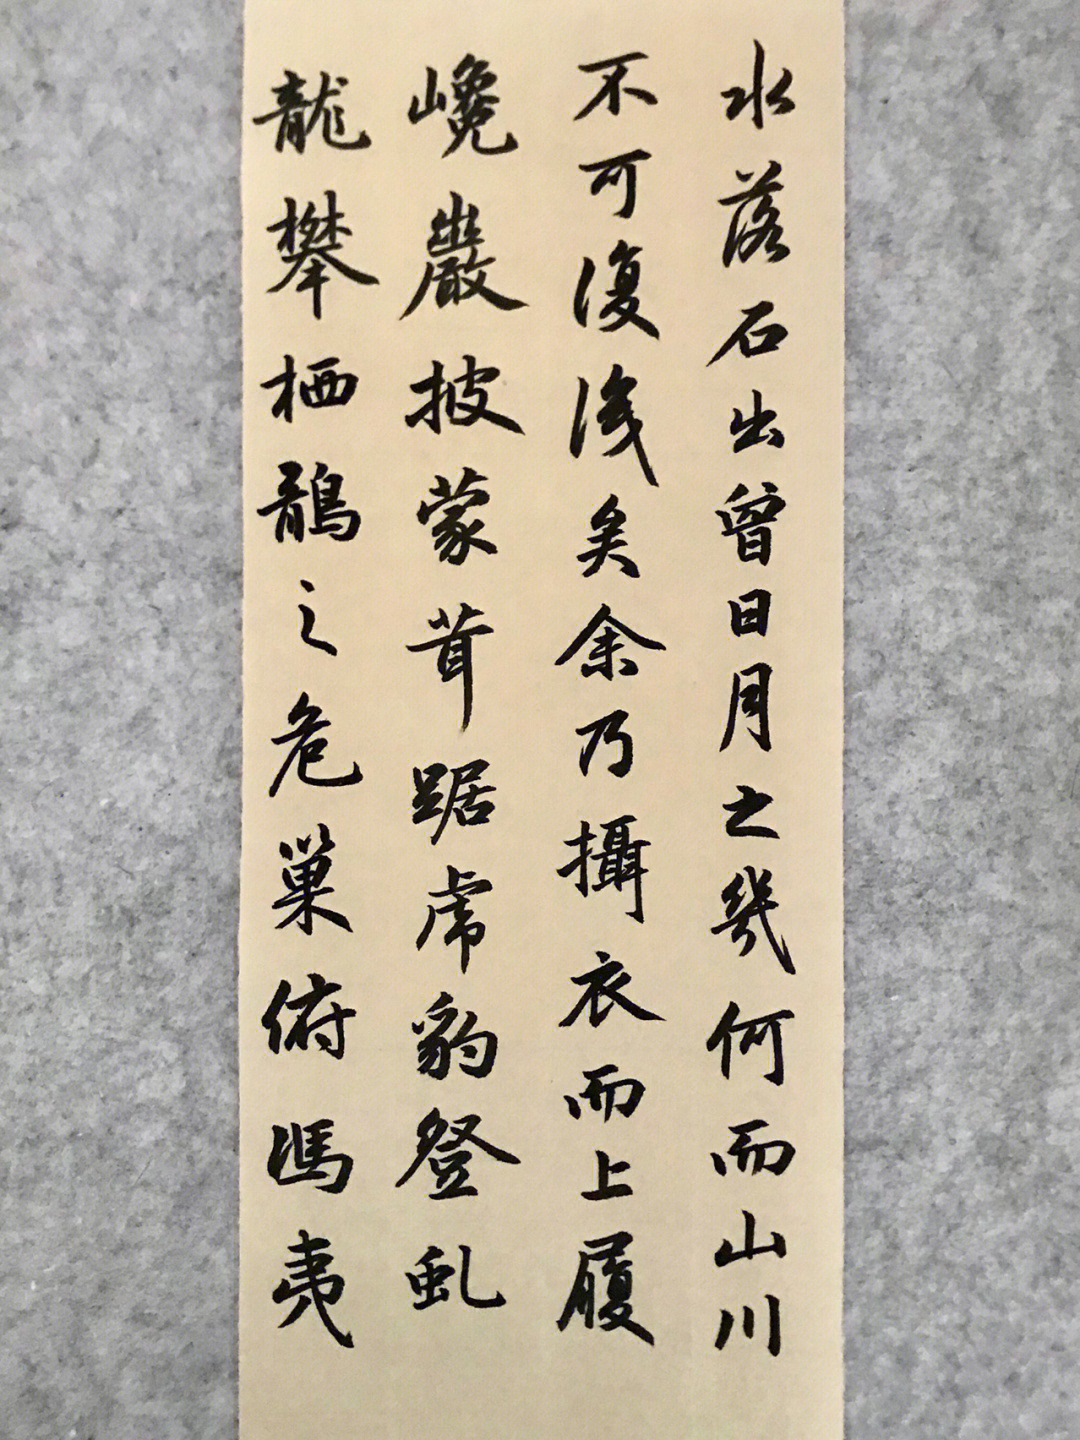 水落石出曾日月之幾何而山川
不可復識矣余乃攝衣而上履
巉巖披蒙茸踞虎豹登虬
龍攀栖鶻之危巢俯馮夷